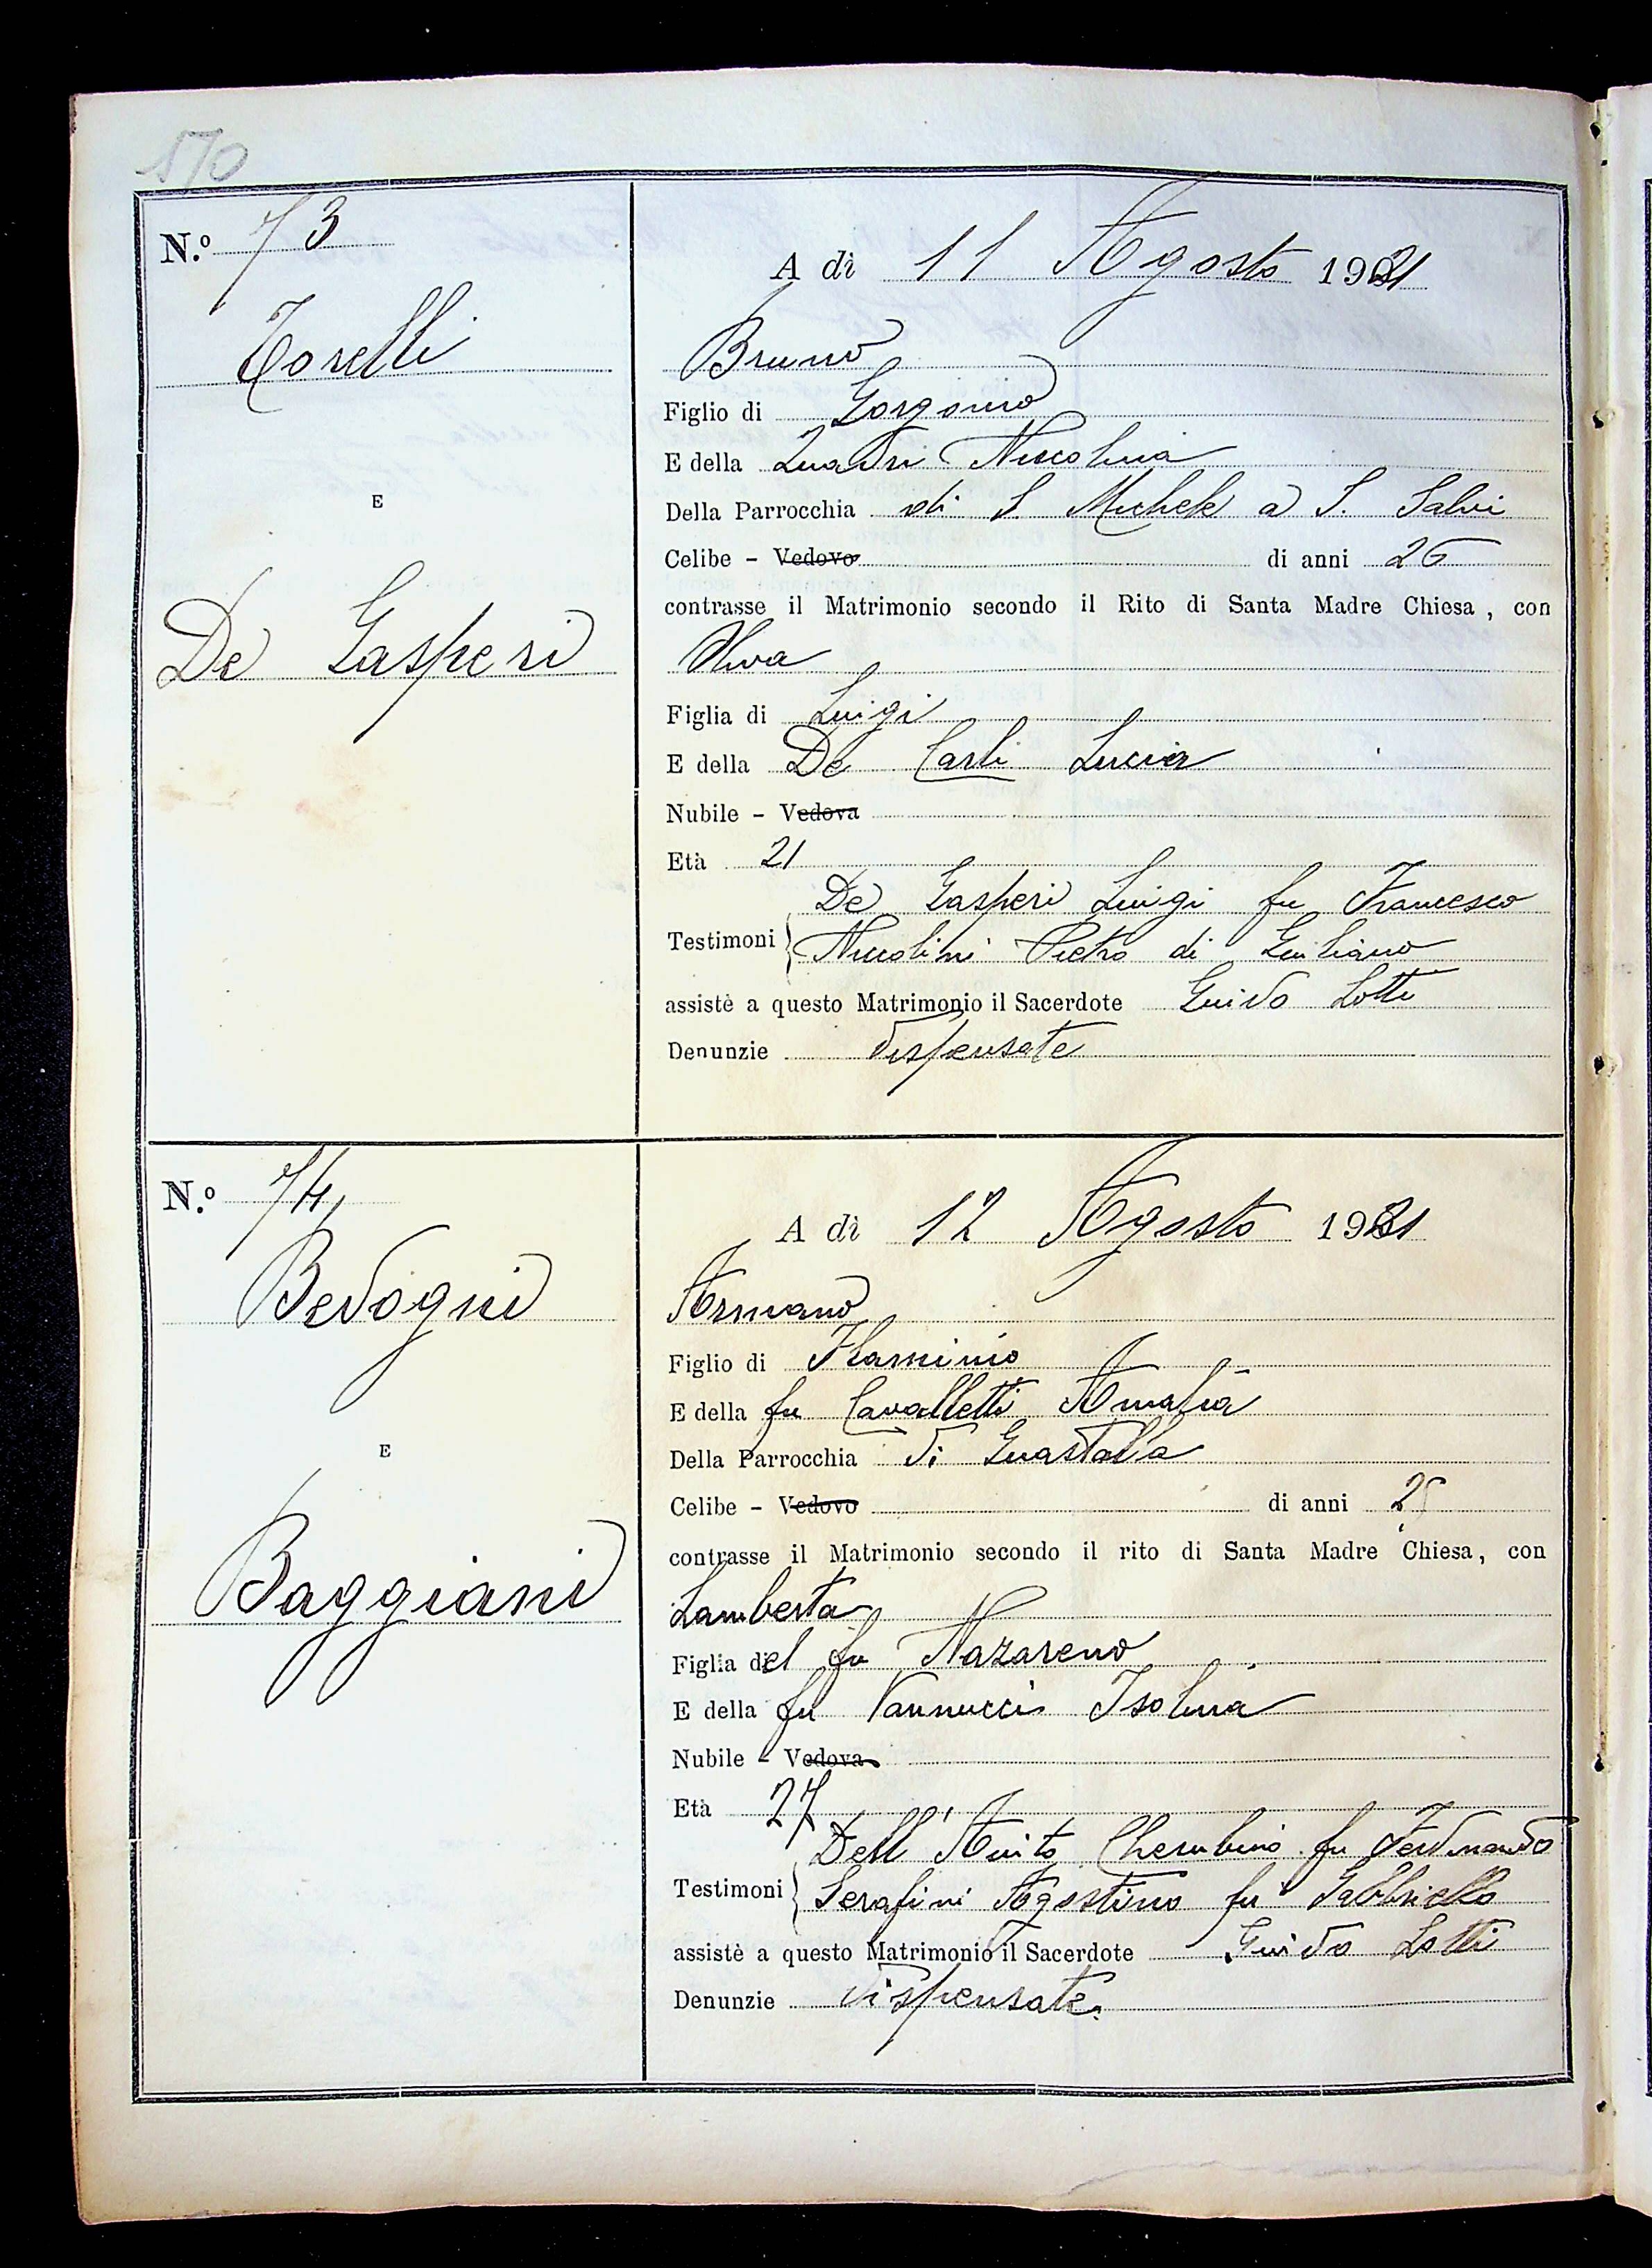 570
N.º 73
A dì 11 Agosto 1921
Torelli
Bruno
Figlio di Gorgonio
E della Quadri Niccolina
E
Della Parrocchia di S. Michele a S. Salvi
Celibe - Vedovo di anni 26
contrasse il Matrimonio secondo il Rito di Santa Madre Chiesa, con
De Gasperi
Figlia di Luigi
E della De Carli Lucia
Nubile - Vedova
Età 21
De Gasperi Luigi fu Francesco
Testimoni
Niccolini Pietro di Giuliano
assistè a questo Matrimonio il Sacerdote Guido Lotti
Denunzie dispensate
N.º 74
A dì 12 Agosto 1921
Bedogni
Armando
Figlio di Flaminio
E della fu Cavalletti Amalia
E
Della Parrocchia di Guastalla
Celibe - Vedovo di anni
contrasse il Matrimonio secondo il rito di Santa Madre Chiesa, con
Baggiani
Lamberta
Figlia del fu Nazareno
E della fu Vannucci Isolina
Nubile - Vedova
Età 27
Dell' Cherubino fu Ferdinando
Testimoni
Serafini Agostino fu Gabbriello
assistè a questo Matrimonio il Sacerdote Guido Lotti
Denunzie dispensate.